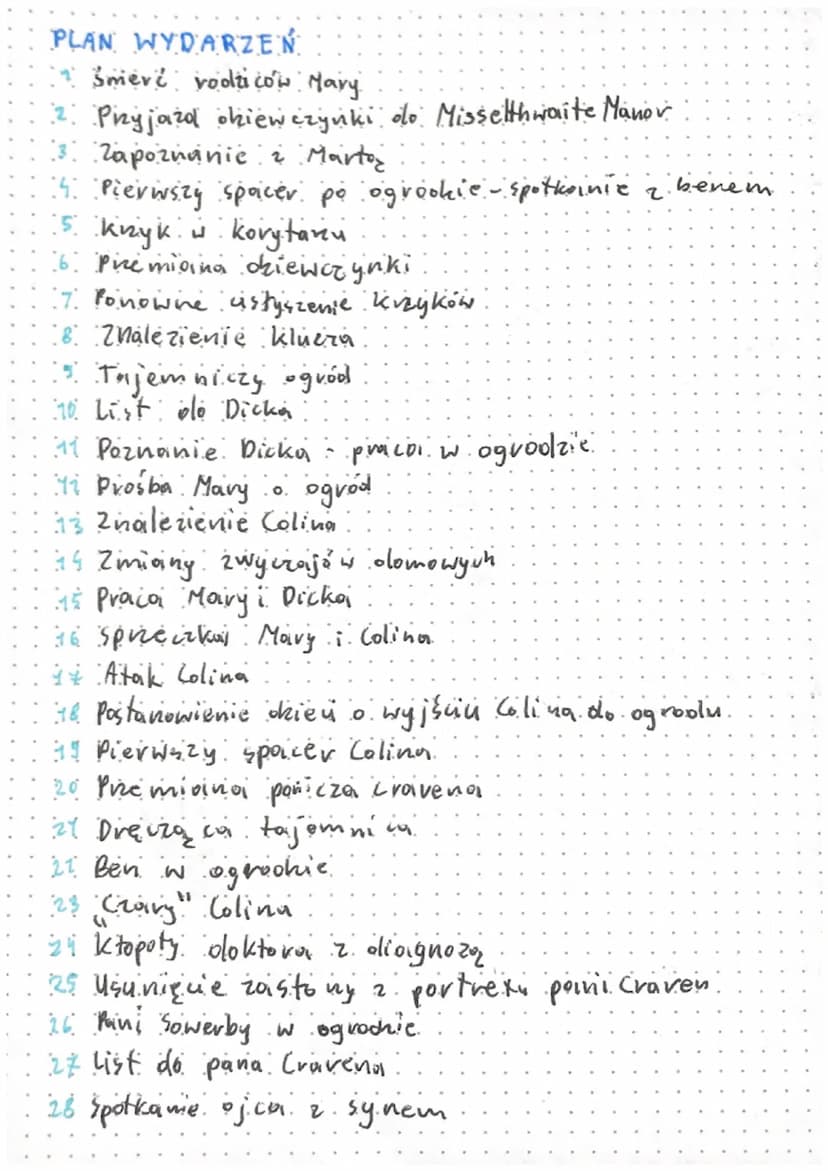 PLAN WYDARZEŃ
1. Śmierć rodziców Mary
2. Przyjazd dziewczynki do Misselthwaite Manor
3. Zapoznanie z Martą
4. Pierwszy spacer po ogrodzie - spotkanie z benem
5. Krzyk w korytarzu
6. Przemiana dziewczynki
7. Ponowne usłyszenie krzyków
8. Znalezienie klucza
9. Tajemniczy ogród
10. List do Dicka
11 Poznanie Dicka - praca w ogrodzie
12 Prośba Mary o ogród
13 Znalezienie Colina
14 Zmiany zwyczajów domowych
15 Praca Mary i Dicka
16 sprzeczka Mary i Colina
17 Atak Colina
18 Postanowienie dzieci o wyjściu Colina do ogrodu
19 Pierwszy spacer Colina
20 Przemiana panicza Cravena
21 Dręcząca tajemnica
22 Ben w ogrodzie
23 „Czary" Colina
24 Kłopoty doktora z diagnozą
25 Usunięcie zasłony z portretu pani Craven
26 Pani Sowerby w ogrodzie
27 List do pana Cravena
28 Spotkanie ojca z synem